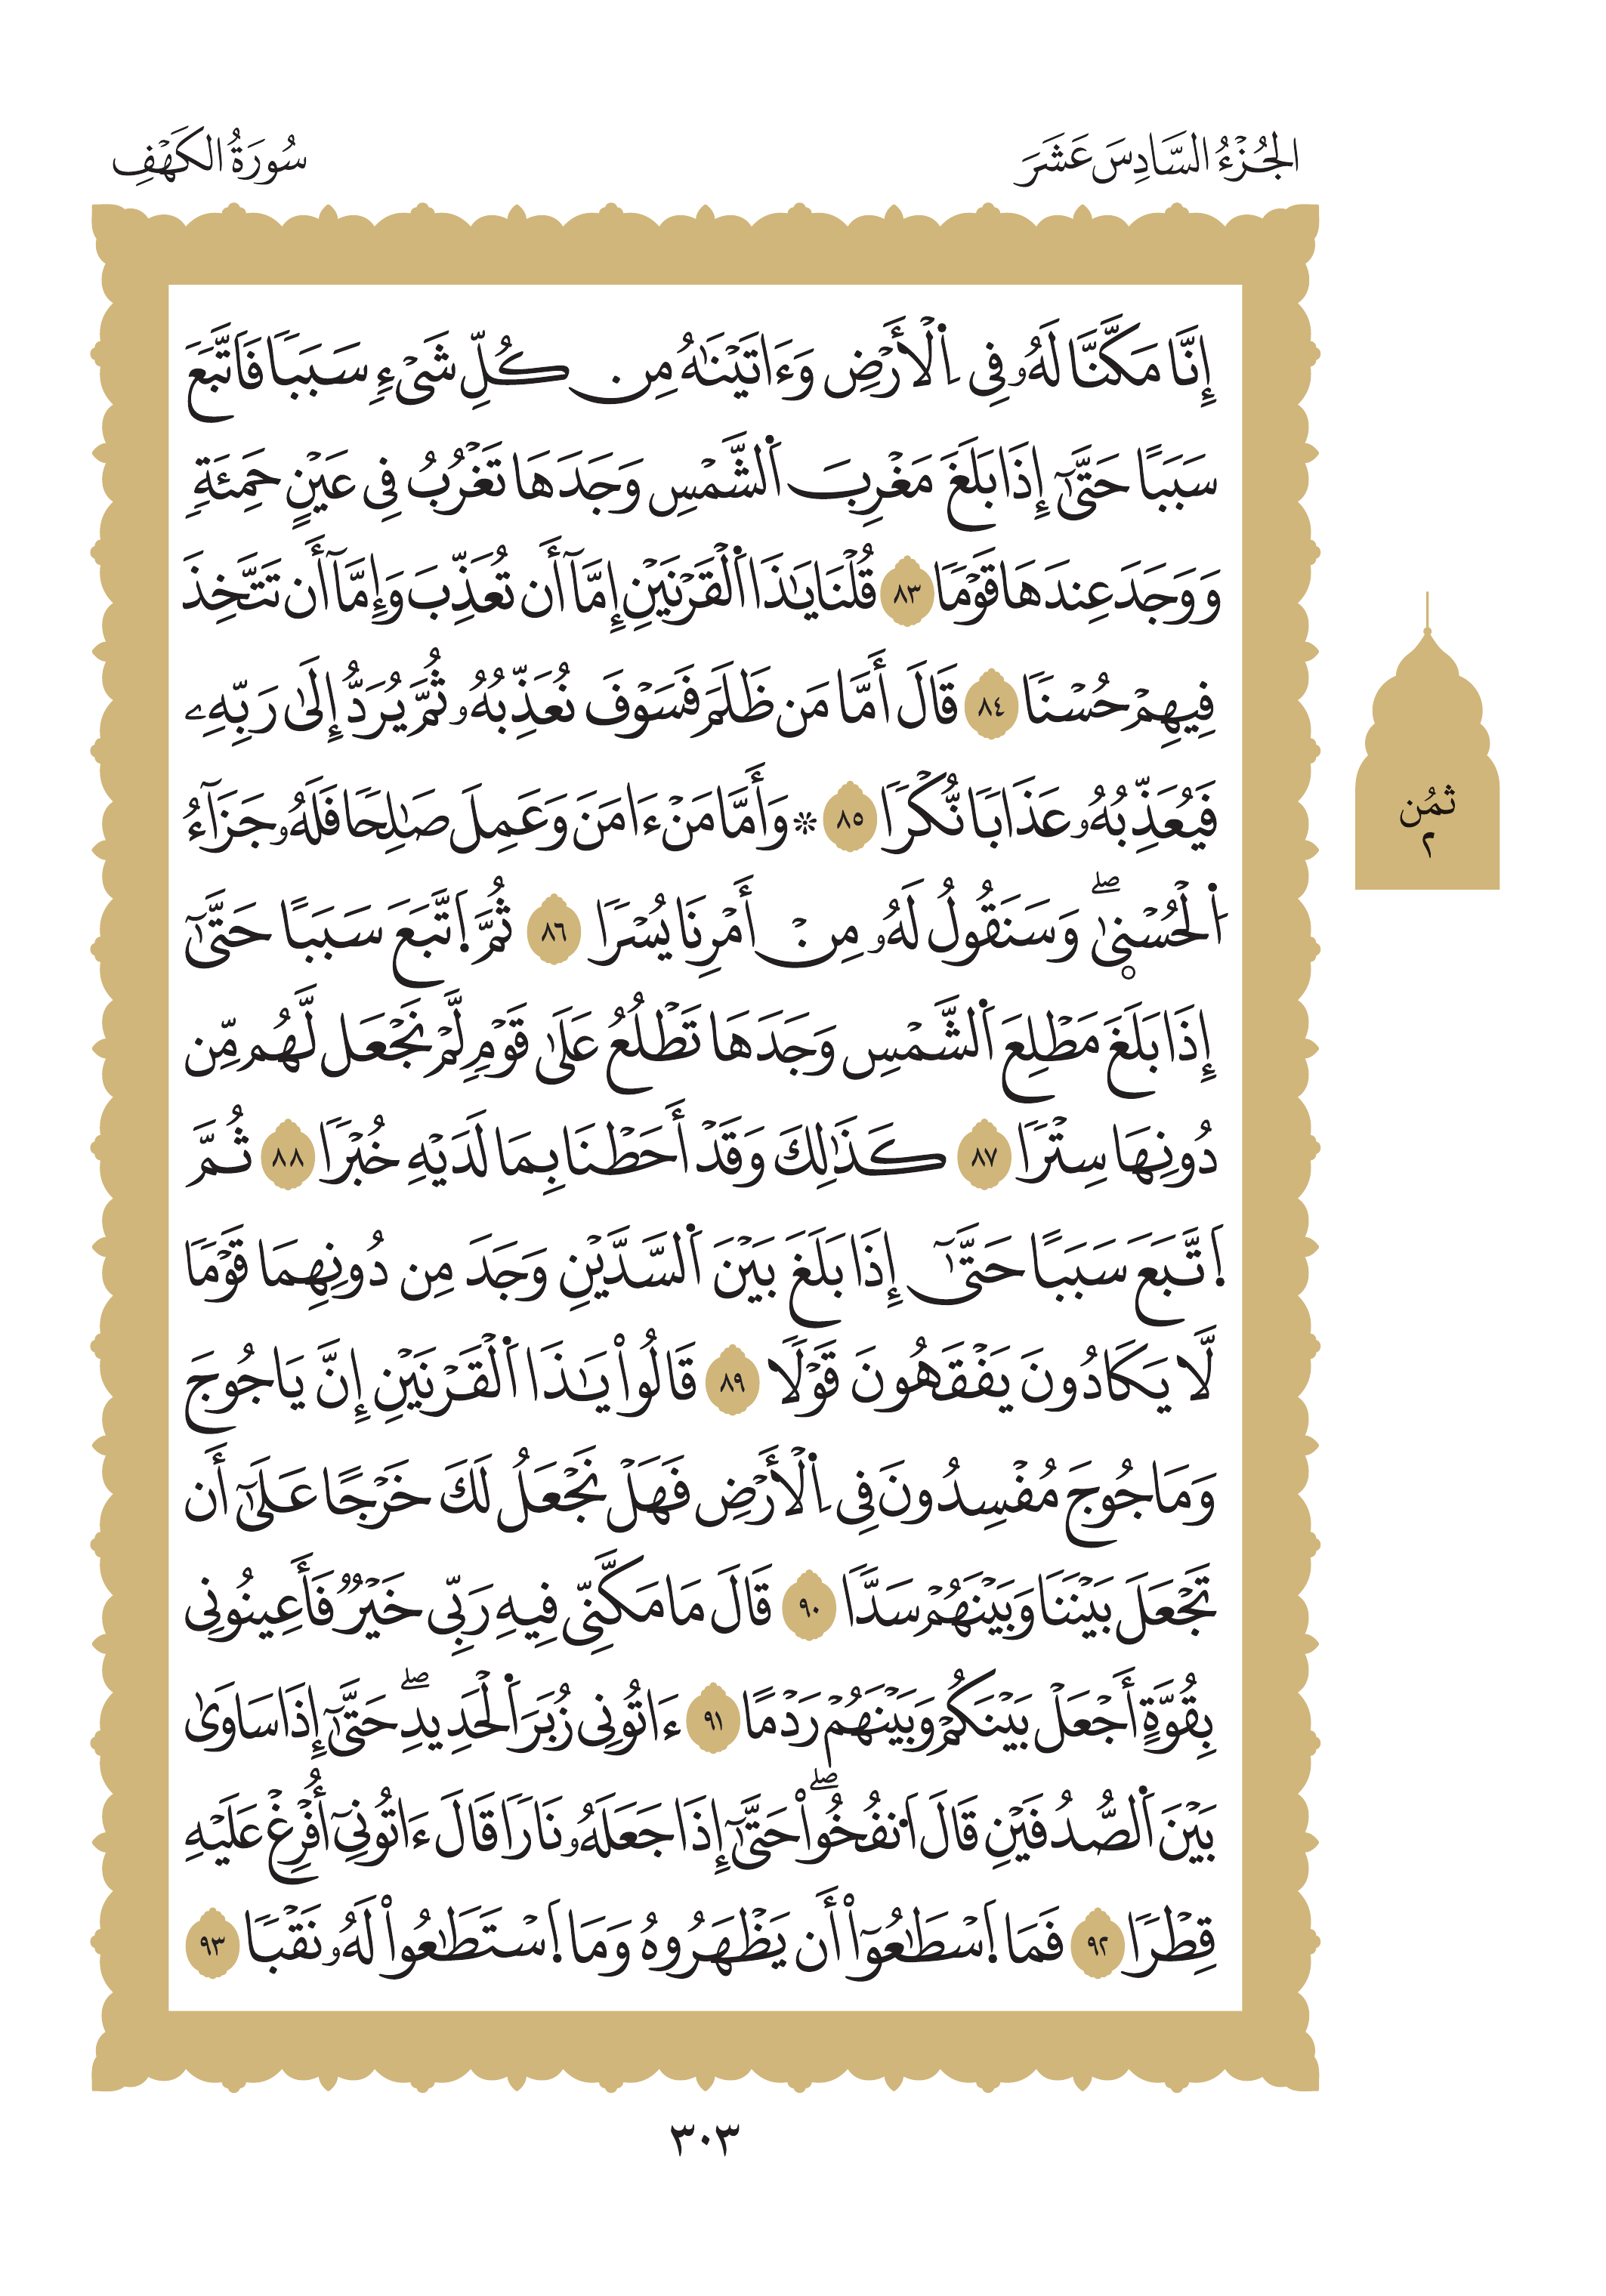 الجُزْءُ السَّادِسَ عَشَرَ
سُورَةُ الكَهْفِ
إِنَّا مَكَّنَّا لَهُۥ فِى اِ۬لْأَرْضِ وَءَاتَيْنَٰهُ مِن كُلِّ شَىْءٖ سَبَبٗا فَاتَّبَعَ
سَبَبًا حَتَّىٰٓ إِذَا بَلَغَ مَغْرِبَ اَ۬لشَّمْسِ وَجَدَهَا تَغْرُبُ فِى عَيْنٍ حَمِئَةٖ
وَوَجَدَ عِندَهَا قَوْمٗا ٨٣ قُلْنَا يَٰذَا اَ۬لْقَرْنَيْنِ إِمَّآ أَن تُعَذِّبَ وَإِمَّآ أَن تَتَّخِذَ
فِيهِمْ حُسْنٗا ٨٤ قَالَ أَمَّا مَن ظَلَمَ فَسَوْفَ نُعَذِّبُهُۥ ثُمَّ يُرَدُّ إِلَىٰ رَبِّهِۦ
فَيُعَذِّبُهُۥ عَذَابٗا نُّكْرٗا ٨٥ ۞ وَأَمَّا مَنْ ءَامَنَ وَعَمِلَ صَٰلِحٗا فَلَهُۥ جَزَآءُ
اُ۬لْحُسْنىٰۖ وَسَنَقُولُ لَهُۥ مِنْ أَمْرِنَا يُسْرٗا ٨٦ ثُمَّ اَ۪تَّبَعَ سَبَبًا حَتَّىٰٓ
إِذَا بَلَغَ مَطْلِعَ اَ۬لشَّمْسِ وَجَدَهَا تَطْلُعُ عَلَىٰ قَوْمٖ لَّمْ نَجْعَل لَّهُم مِّن
دُونِهَا سِتْرٗا ٨٧ كَذَٰلِكَ وَقَدْ أَحَطْنَا بِمَا لَدَيْهِ خُبْرٗا ٨٨ ثُمَّ
اَ۪تَّبَعَ سَبَبًا حَتَّىٰٓ إِذَا بَلَغَ بَيْنَ اَ۬لسَّدَّيْنِ وَجَدَ مِن دُونِهِمَا قَوْمٗا
لَّا يَكَادُونَ يَفْقَهُونَ قَوْلٗا ٨٩ قَالُواْ يَٰذَا اَ۬لْقَرْنَيْنِ إِنَّ يَاجُوجَ
وَمَاجُوجَ مُفْسِدُونَ فِى اِ۬لْأَرْضِ فَهَلْ نَجْعَلُ لَكَ خَرْجًا عَلَىٰٓ أَن
تَجْعَلَ بَيْنَنَا وَبَيْنَهُمْ سَدّٗا ٩٠ قَالَ مَا مَكَّنِّى فِيهِ رَبِّى خَيْرٞ فَأَعِينُونِى
بِقُوَّةٍ أَجْعَلْ بَيْنَكُمْ وَبَيْنَهُمْ رَدْمًا ٩١ ءَاتُونِى زُبَرَ اَ۬لْحَدِيدِۖ حَتَّىٰٓ إِذَا سَاوَىٰ
بَيْنَ اَ۬لصُّدُفَيْنِ قَالَ اَ۟نفُخُواْۖ حَتَّىٰٓ إِذَا جَعَلَهُۥ نَارٗا قَالَ ءَاتُونِىٓ أُفْرِغْ عَلَيْهِ
قِطْرٗا ٩٢ فَمَا اَ۪سْطَٰعُوٓاْ أَن يَظْهَرُوهُ وَمَا اَ۪سْتَطَٰعُواْ لَهُۥ نَقْبٗا ٩٣
ثمُن
٢
٣٠٣